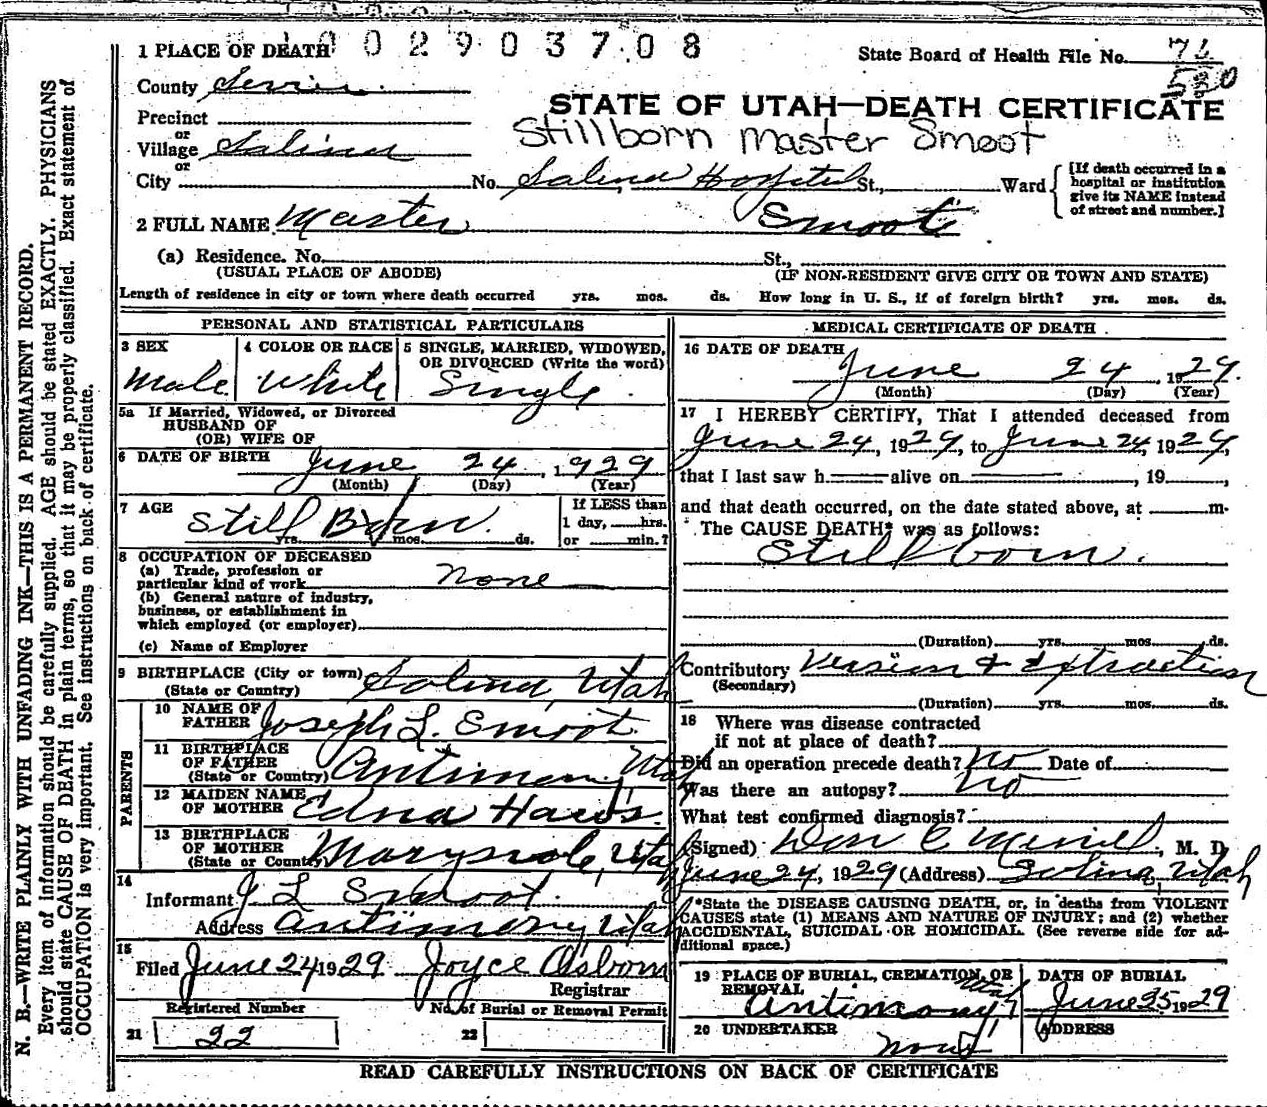 1 PLACE OF DEATH
0 0 2 9 0 3 7 0 8
State Board of Health File No. 76
530
County Sevier
STATE OF UTAH—DEATH CERTIFICATE
Precinct
or
Stillborn Master Smoot
Village Salina
or
City No. Salina Hospital St., Ward
[If death occurred in a hospital or institution give its NAME instead of street and number.]
2 FULL NAME Master Smoot
(a) Residence. No. St.,
(USUAL PLACE OF ABODE) (IF NON-RESIDENT GIVE CITY OR TOWN AND STATE)
Length of residence in city or town where death occurred yrs. mos. ds. How long in U. S., if of foreign birth? yrs. mos. ds.
PERSONAL AND STATISTICAL PARTICULARS
3 SEX
Male
4 COLOR OR RACE
White
5 SINGLE, MARRIED, WIDOWED,
OR DIVORCED (Write the word)
Single
5a If Married, Widowed, or Divorced
HUSBAND OF
(OR) WIFE OF
6 DATE OF BIRTH June 24, 1929
(Month) (Day) (Year)
7 AGE
Still Born
yrs. mos. ds.
If LESS than
1 day, hrs.
or min.?
8 OCCUPATION OF DECEASED
(a) Trade, profession or
particular kind of work None
(b) General nature of industry,
business, or establishment in
which employed (or employer)
(c) Name of Employer
9 BIRTHPLACE (City or town) Salina, Utah
(State or Country)
PARENTS
10 NAME OF
FATHER Joseph L. Smoot
11 BIRTHPLACE
OF FATHER
(State or Country) Antimony, Utah
12 MAIDEN NAME
OF MOTHER Edna Haws.
13 BIRTHPLACE
OF MOTHER
(State or Country) Marysvale, Utah
14
Informant J L Smoot.
Address Antimony, Utah
15
Filed June 24 1929 Joyce Osborn
Registrar
Registered Number No. of Burial or Removal Permit
21 22 22
MEDICAL CERTIFICATE OF DEATH
16 DATE OF DEATH
June 24, 1929.
(Month) (Day) (Year)
17 I HEREBY CERTIFY, That I attended deceased from
June 24, 1929, to June 24, 1929,
that I last saw h alive on , 19 ,
and that death occurred, on the date stated above, at m.
The CAUSE DEATH* was as follows:
Stillborn.
(Duration) yrs. mos. ds.
Contributory Version & Extraction
(Secondary)
(Duration) yrs. mos. ds.
18 Where was disease contracted
if not at place of death?
Did an operation precede death? No Date of
Was there an autopsy? No
What test confirmed diagnosis?
(Signed) Don C Merrill, M. D.
June 24, 1929 (Address) Salina, Utah
*State the DISEASE CAUSING DEATH, or, in deaths from VIOLENT
CAUSES state (1) MEANS AND NATURE OF INJURY; and (2) whether
ACCIDENTAL, SUICIDAL OR HOMICIDAL. (See reverse side for ad-
ditional space.)
19 PLACE OF BURIAL, CREMATION, OR
REMOVAL
Antimony, Utah
DATE OF BURIAL
June 25 1929
20 UNDERTAKER
None
ADDRESS
READ CAREFULLY INSTRUCTIONS ON BACK OF CERTIFICATE
N. B.—WRITE PLAINLY WITH UNFADING INK—THIS IS A PERMANENT RECORD.
Every item of information should be carefully supplied. AGE should be stated EXACTLY. PHYSICIANS
should state CAUSE OF DEATH in plain terms, so that it may be properly classified. Exact statement of
OCCUPATION is very important. See instructions on back of certificate.